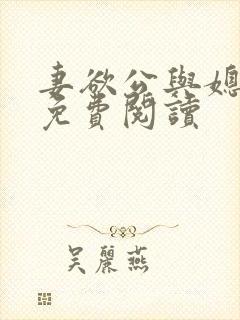 妻欲公與媳
免費閱讀
吳麗燕